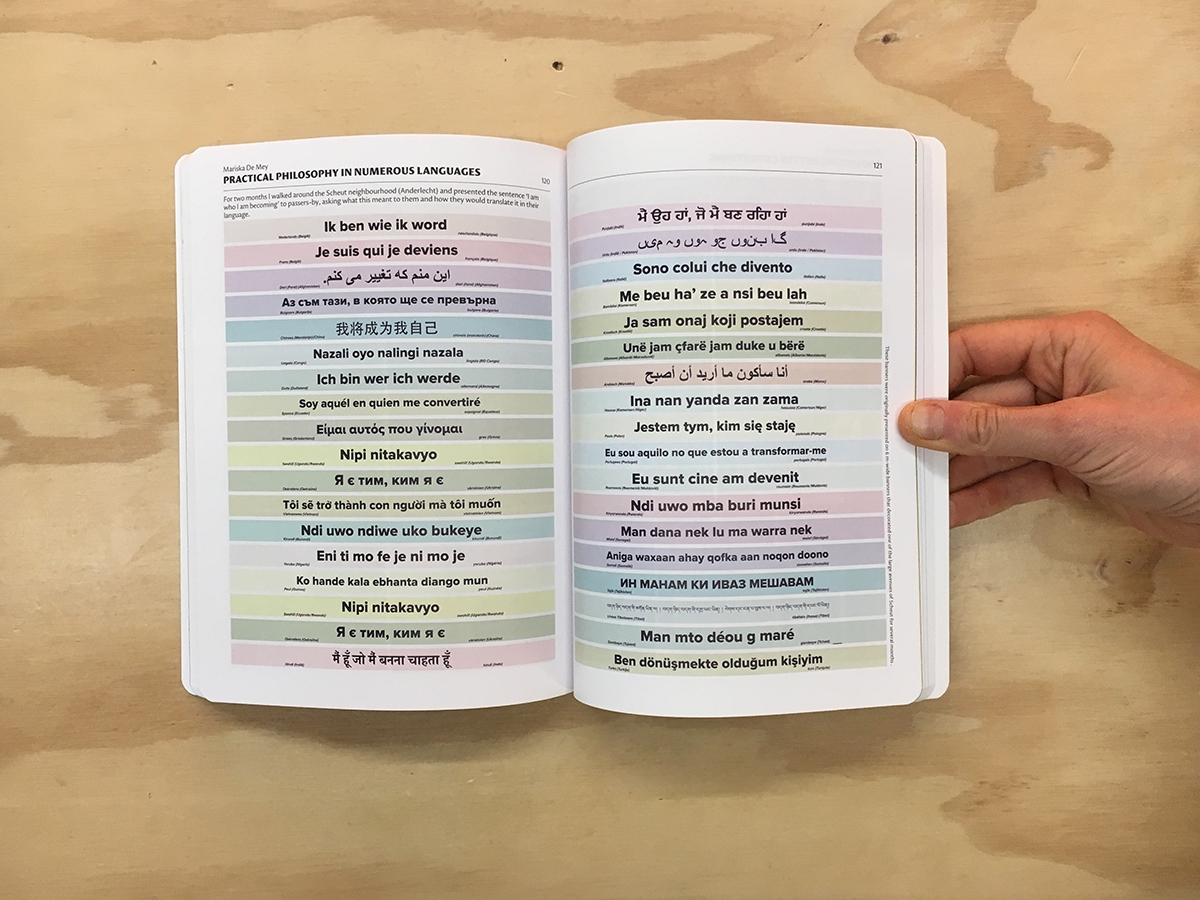 Mariska De Mey
PRACTICAL PHILOSOPHY IN NUMEROUS LANGUAGES
120
For two months I walked around the Scheut neighbourhood (Anderlecht) and presented the sentence ‘I am
who I am becoming’ to passers-by, asking what this meant to them and how they would translate it in their
language.
Ik ben wie ik word
Nederlands (België) néerlandais (Belgique)
Je suis qui je deviens
Frans (België) français (Belgique)
این منم که تغییر می کنم.
Dari (Perzi) (Afghanistan) dari (Afghanistan)
Аз съм тази, в която ще се превърна
Bulgaars (Bulgarije) bulgare (Bulgarie)
我将成为我自己
Chinees (Mandarijn)/China) chinois (mandarin)/Chine)
Nazali oyo nalingi nazala
Lingala (Congo) lingala (RD Congo)
Ich bin wer ich werde
Duits (Duitsland) allemand (Allemagne)
Soy aquél en quien me convertiré
Spaans (Ecuador) espagnol (Equateur)
Είμαι αυτός που γίνομαι
Grieks (Griekenland) grec (Grèce)
Nipi nitakavyo
Swahili (Uganda/Rwanda) swahili (Uganda/Rwanda)
Я є тим, ким я є
Oekraïens (Oekraïne) ukrainien (Ukraine)
Tôi sẽ trở thành con người mà tôi muốn
Vietnamees (Vietnam) vietnamien (Vietnam)
Ndi uwo ndiwe uko bukeye
Kirundi (Burundi) kirundi (Burundi)
Eni ti mo fe je ni mo je
Yoruba (Nigeria) yoruba (Nigéria)
Ko hande kala ebhanta diango mun
Peul (Guinea) peul (Guinée)
Nipi nitakavyo
Swahili (Uganda/Rwanda) swahili (Uganda/Rwanda)
Я є тим, ким я є
Oekraïens (Oekraïne) ukrainien (Ukraine)
मैं हूँ जो मैं बनना चाहता हूँ
Hindi (Indië) hindi (Inde)
121
ਮੈ ਉਹ ਹਾਂ, ਜੋ ਮੈ ਬਣ ਰਹਿਾ ਹਾਂ
Punjabi (Indië) punjabi (Inde)
گا بنوں جو ہوں وہ میں
Urdu (Indië / Pakistan) urdu (Inde / Pakistan)
Sono colui che divento
Italiaans (Italië) italien (Italie)
Me beu ha’ ze a nsi beu lah
Bamileke (Kameroen) bamileke (Cameroun)
Ja sam onaj koji postajem
Kroatisch (Kroatië) croate (Croatie)
Unë jam çfarë jam duke u bërë
Albanees (Albanië/Macedonië) albanais (Albanie/Macédoine)
أنا سأكون ما أريد أن أصبح
Arabisch (Marokko) arabe (Maroc)
Ina nan yanda zan zama
Hausa (Kameroen/Niger) haoussa (Cameroun/Niger)
Jestem tym, kim się staję
Pools (Polen) polonais (Pologne)
Eu sou aquilo no que estou a transformar-me
Portugees (Portugal) portugais (Portugal)
Eu sunt cine am devenit
Roemeens (Roemenië/Moldavië) roumain (Roumanie/Moldavie)
Ndi uwo mba buri munsi
Kinyarwanda (Rwanda) kinyarwanda (Rwanda)
Man dana nek lu ma warra nek
Wolof (Senegal) wolof (Sénégal)
Aniga waxaan ahay qofka aan noqon doono
Somali (Somalië) somalien (Somalie)
ИН МАНАМ КИ ИВАЗ МЕШАВАМ
Man mto déou g maré
Ben dönüşmekte olduğum kişiyim
Turks (Turkije) turc (Turquie)
These banners were originally presented on 6 m-wide banners that decorated one of the large avenues of Scheut for several months -